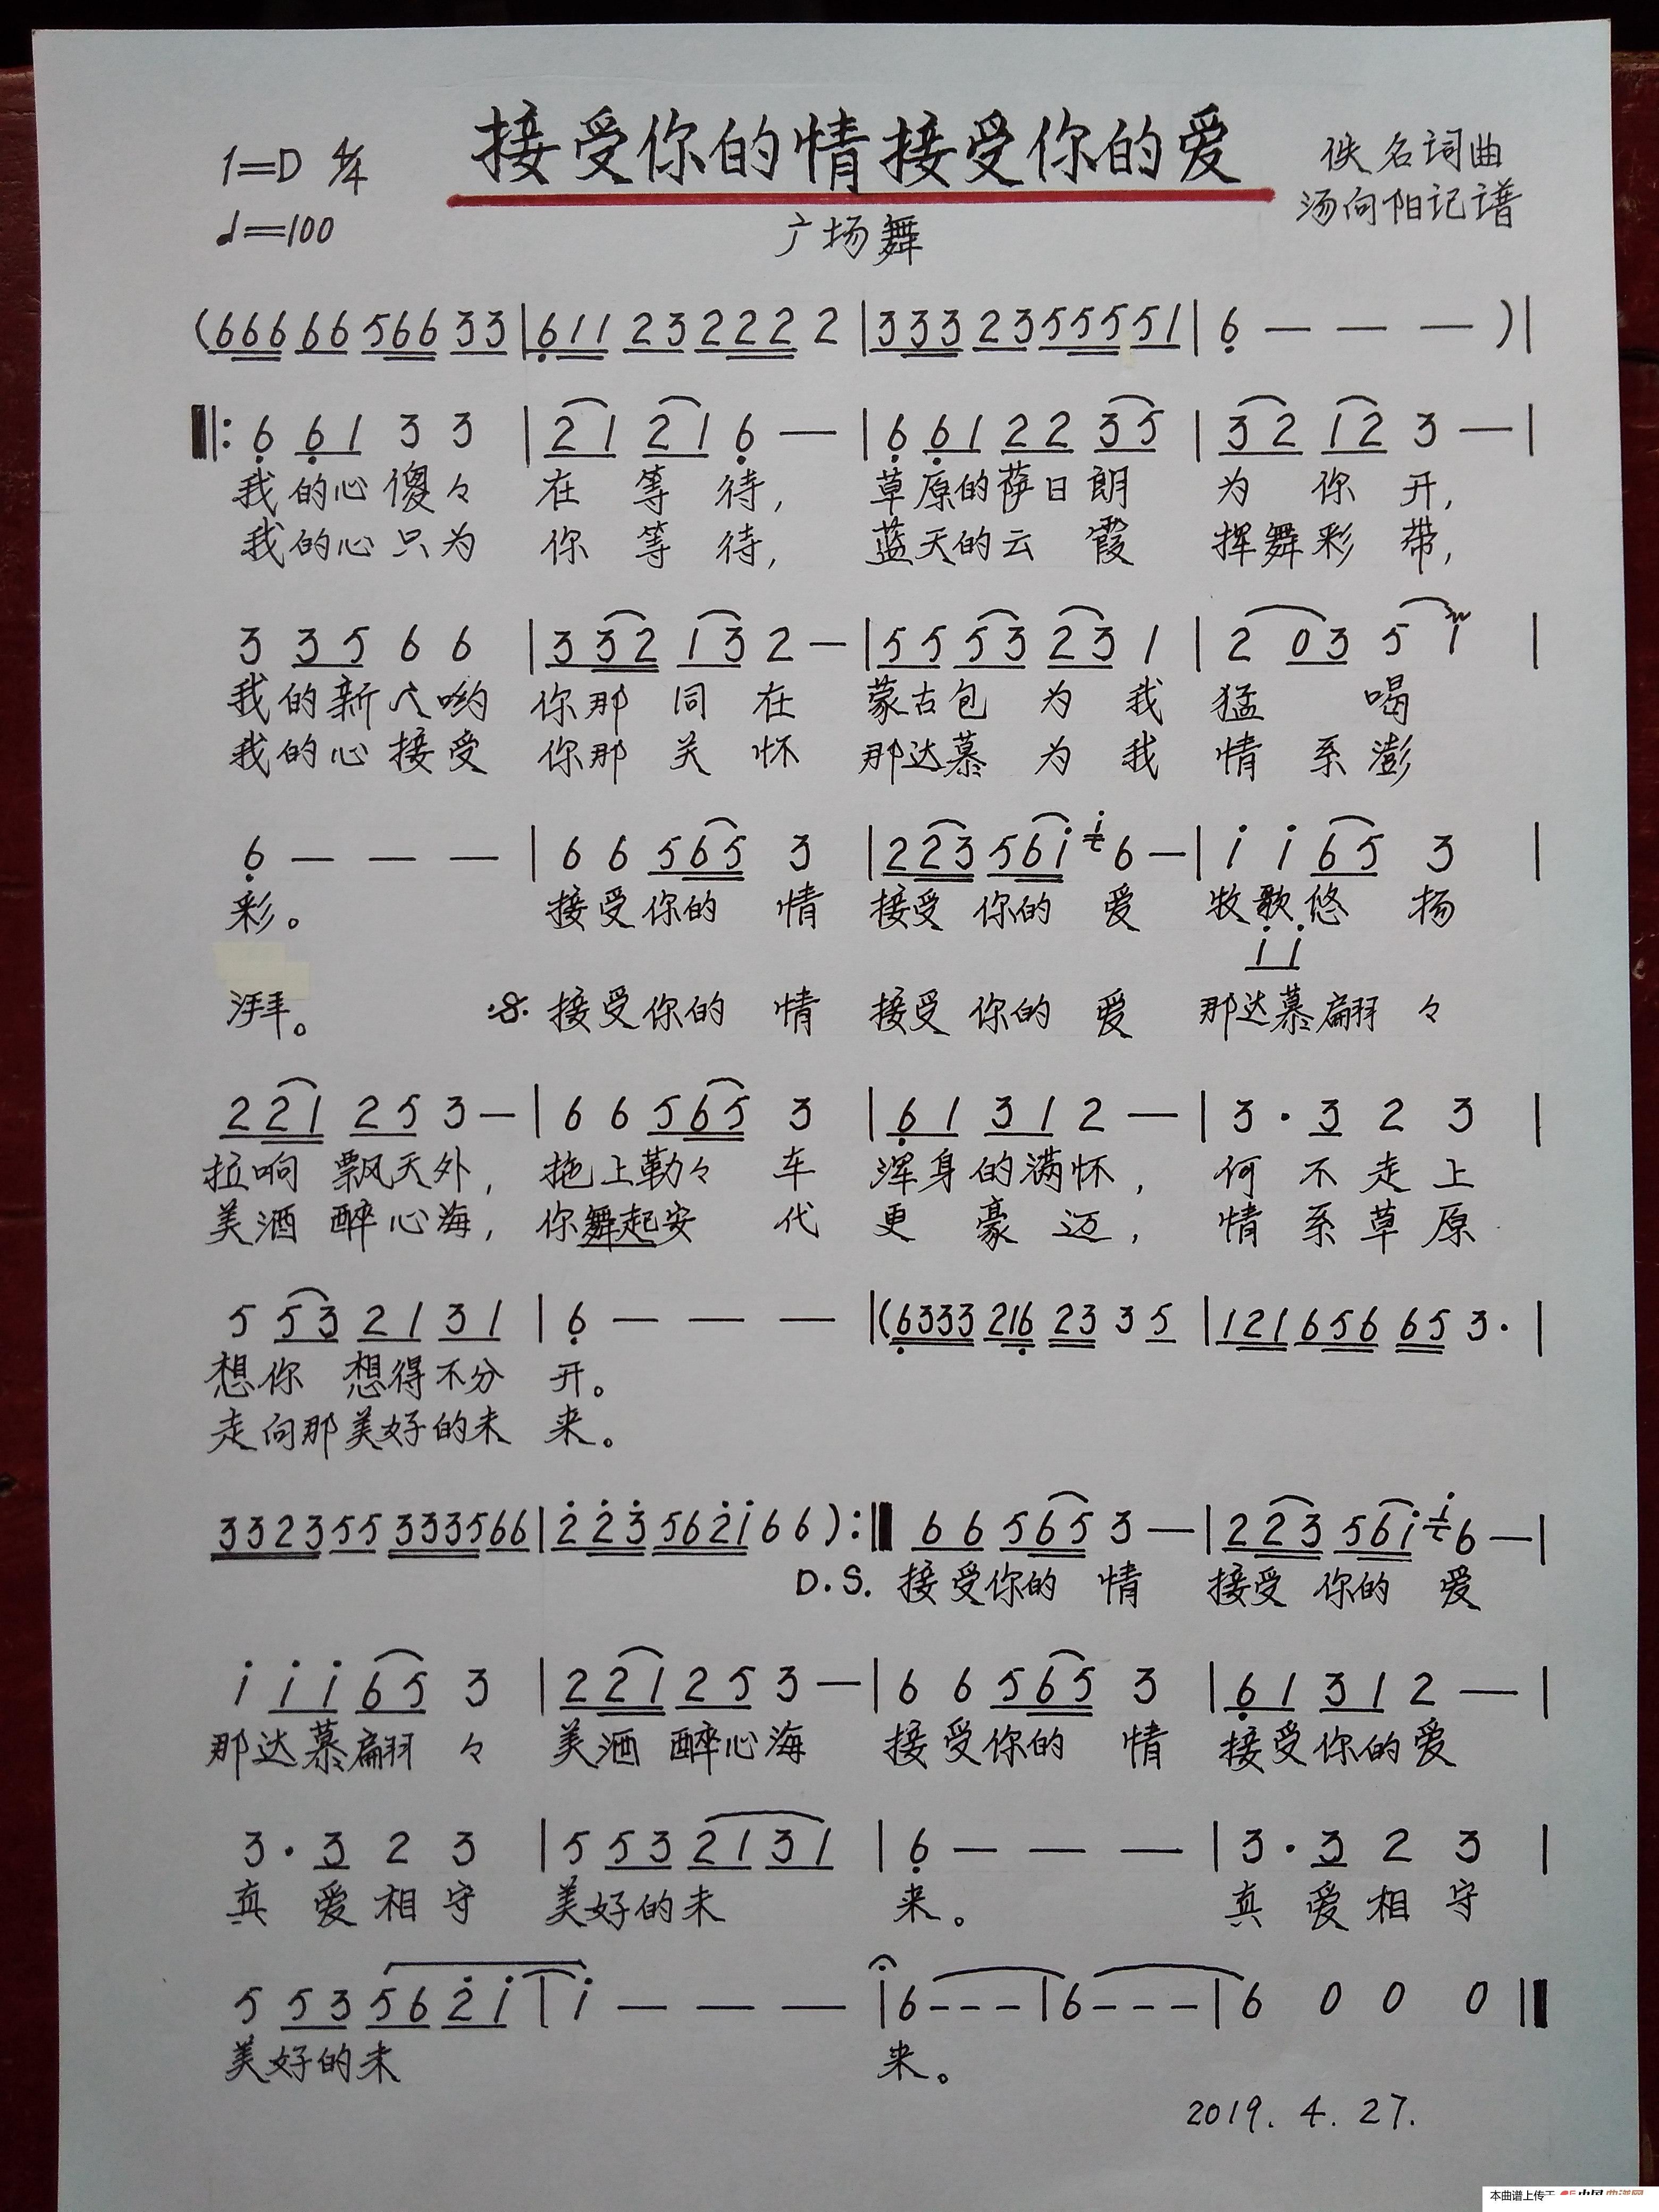 接受你的情接受你的爱
1=D 4/4
佚名词曲
♩=100
汤向阳记谱
广场舞
(666 66 566 33|611 23 222 2|333 23 5555 51|6 — — —)|
‖: 6 61 3 3 |21 21 6 —|6 61 22 35|32 12 3 —|
我的心傻々 在 等 待, 草原的萨日朗 为 你 开,
我的心只为 你 等 待, 蓝天的云 霞 挥舞彩 带,
3 35 6 6 |332 13 2 —|55 53 23 1|2 03 5 1 |
我的新 哟 你那 同 在 蒙古包 为 我 猛 喝
我的心接受 你那 关 怀 那达慕 为 我 情 系 澎
6 — — — |6 6 565 3 |223 56i i6 —|i i 65 3 |
彩。 接受你的 情 接受 你的 爱 牧歌悠 扬
i i
湃。 :S. 接受你的 情 接受 你的 爱 那达慕翩 々
221 25 3 —|6 6 565 3 |61 31 2 —|3 · 3 2 3 |
拉响 飘天外, 拖上勒々 车 浑身的满怀, 何 不 走 上
美酒 醉心海, 你舞起安 代 更 豪 迈, 情 系 草 原
5 53 21 31 |6 — — — |(6333 216 23 3 5 |121 656 65 3· |
想你 想得不分 开。
走向那美好的未 来。
3323 55 333566|223 562i 66):‖ 66 565 3 —|223 56i i6 —|
D.S. 接受你的 情 接受 你的 爱
i ii 65 3 |221 25 3 —|6 6 565 3 |61 31 2 — |
那达慕翩 々 美酒 醉心海 接受你的 情 接受你的爱
3 · 3 2 3 |5 53 21 31 |6 — — — |3 · 3 2 3 |
真 爱 相 守 美好的未 来。 真 爱 相 守
5 53 56 2i |i — — — |6---|6---|6 0 0 0 ‖
美好的未 来。
2019. 4. 27.